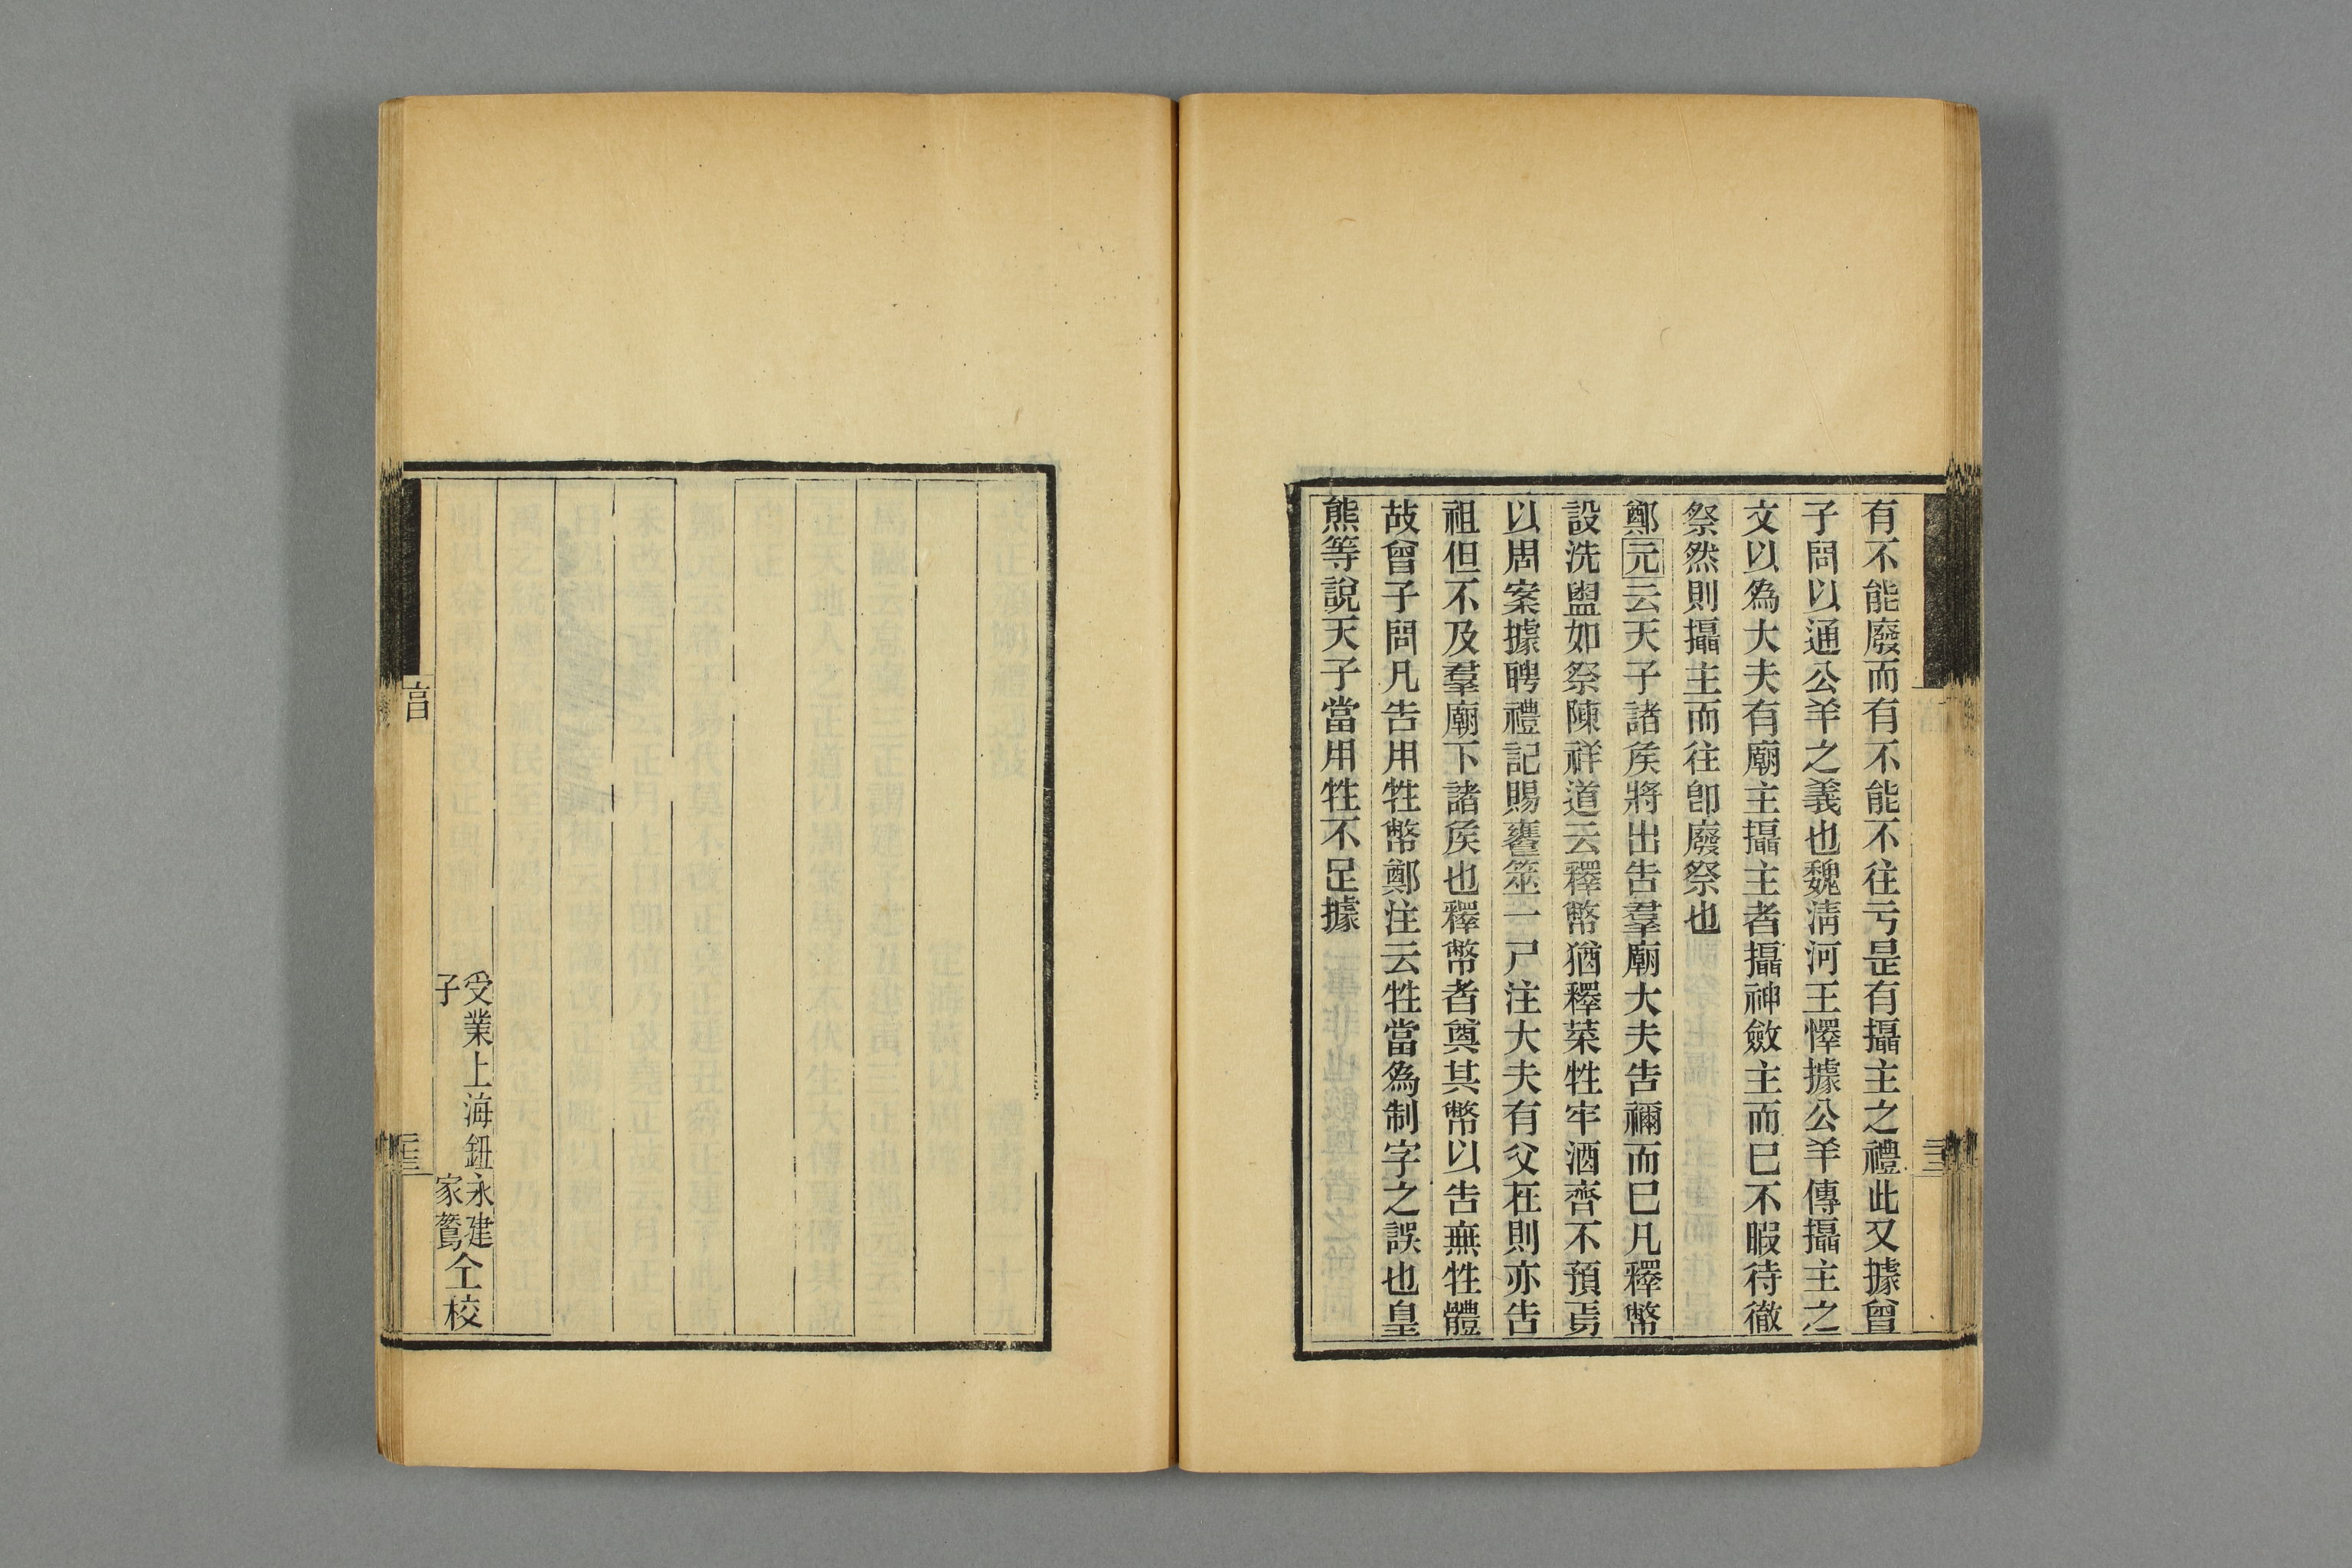 有不能廢而有不能不往亏是有攝主之禮此又據曾
子問以通公羊之義也魏淸河王懌據公羊傳攝主之
文以爲大夫有廟主攝主者攝神斂主而已不暇待徹
祭然則攝主而往卽廢祭也
鄭元云天子諸矦將出告羣廟大夫告禰而已凡釋幣
設洗盥如祭陳祥道云釋幣猶釋菜牲牢酒齊不預焉
以周案據聘禮記賜饔筮一尸注大夫有父在則亦告
祖但不及羣廟下諸矦也釋幣者奠其幣以告無牲體
故曾子問凡告用牲幣鄭注云牲當爲制字之誤也皇
熊等說天子當用牲不足據
受業上海鈕永建
子家鴛
仝校